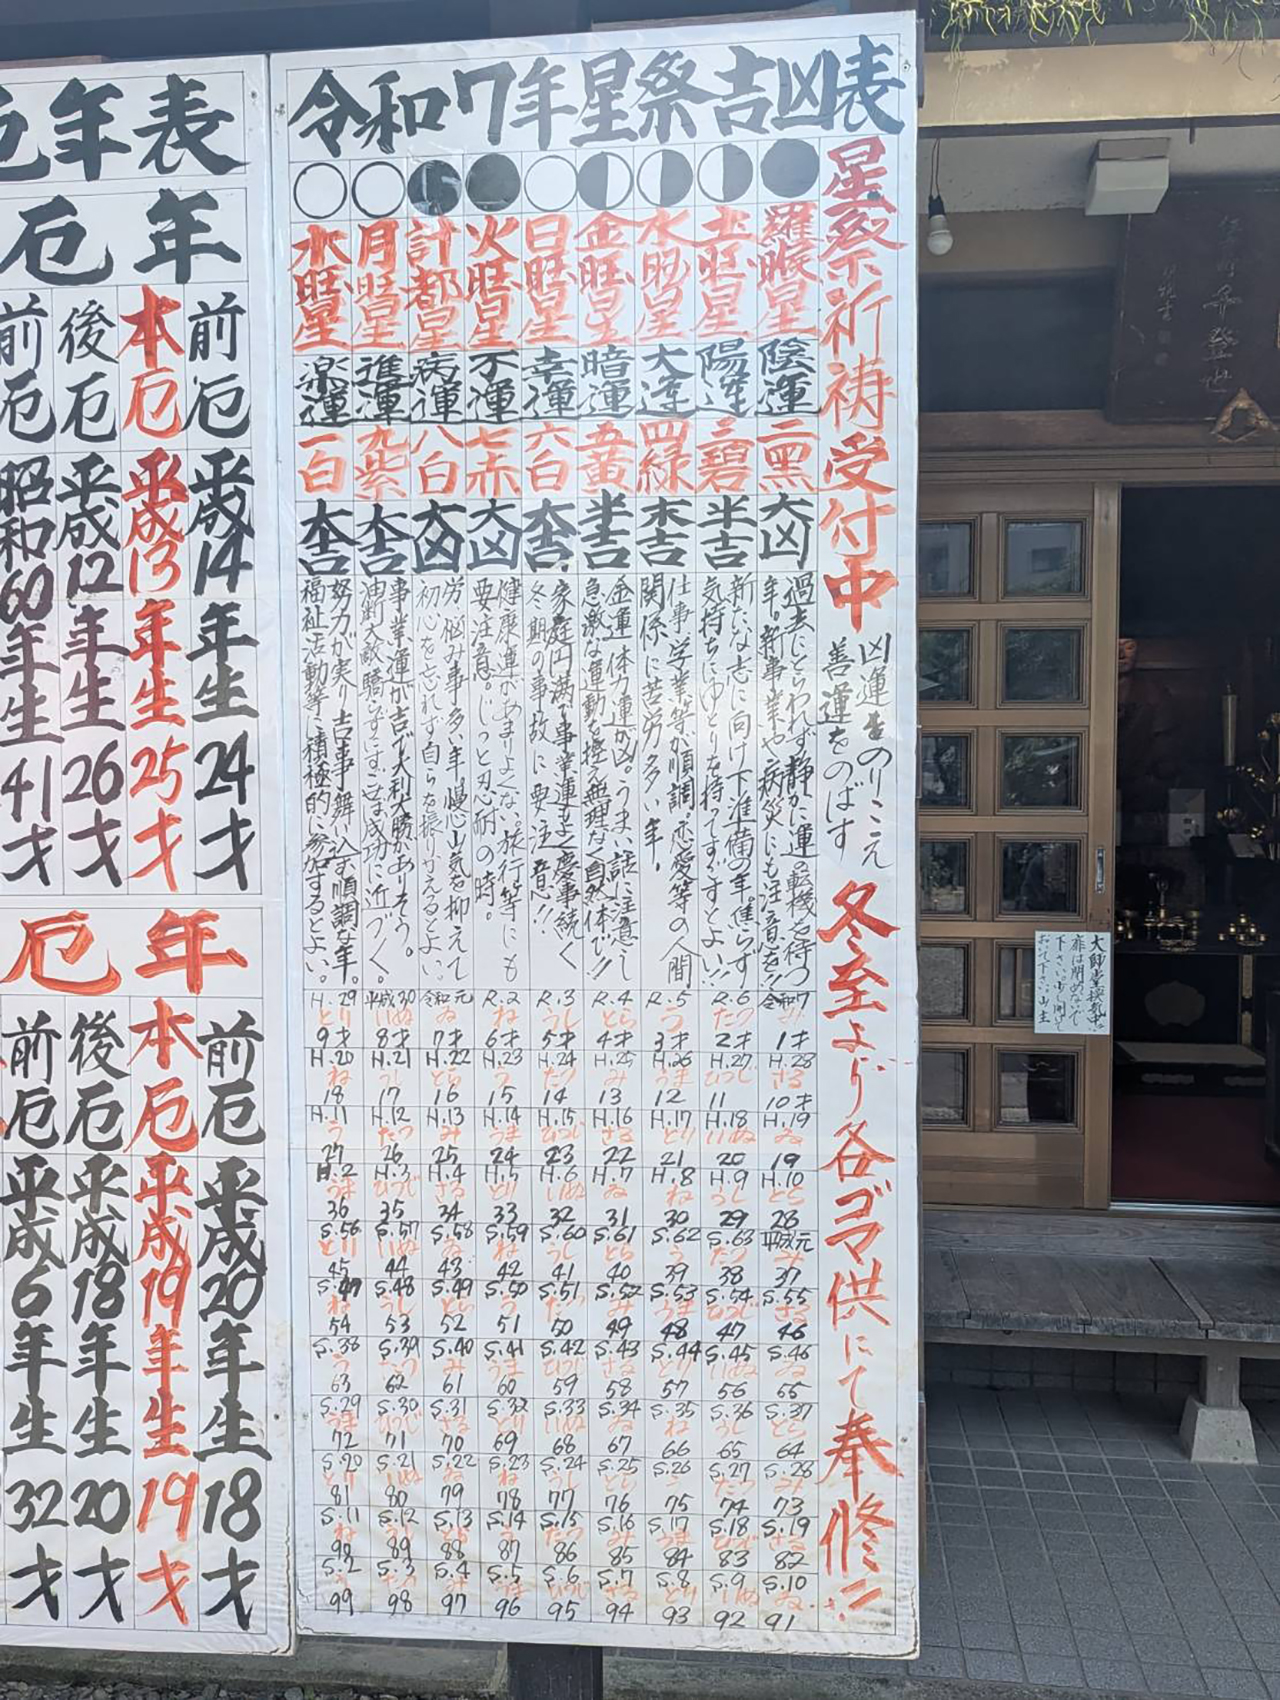 令和7年星祭吉凶表
星祭祈祷受付中
凶運をのりこえ
善運をのばす
冬至より各ゴマ供にて奉修
羅睺星
陰運
二黒
大凶
過去にとらわれず静かに運の転機を待つ
年。新事業や病災にも注意を!!
土旺星
陽運
三碧
半吉
新たな志に向け下準備の年。焦らず
気持ちにゆとりを持ってすごすとよい!!
水旺星
大運
四緑
末吉
仕事、学業等が順調。恋愛等の人間
関係に苦労多い年。
金旺星
暗運
五黄
半吉
金運、体力運が凶。うまい話に注意し
急激な運動を控え無理なく自然体で!!
日旺星
幸運
六白
大吉
家庭円満で事業運もよく慶事続く
冬期の事故に要注意!!
火旺星
不運
七赤
大凶
健康運があまりよくない。旅行等にも
要注意。じっと忍耐の時。
計都星
病運
八白
大凶
労、悩み事多い年。慢心山気を抑えて
初心を忘れず自らを振りかえるとよい。
月旺星
進運
九紫
大吉
事業運が吉で大利大勝がありそう。
油断大敵、驕らずすすめば成功に近づく。
木旺星
楽運
一白
大吉
努力が実り吉事舞い込む順調な年。
福祉活動等に積極的に参加するとよい。
H.29 平成30 令和元 R.2 R.3 R.4 R.5 R.6 令和7
とり いぬ ゐ ね うし とら う たつ み
9才 8才 7才 6才 5才 4才 3才 2才 1才
H.20 H.21 H.22 H.23 H.24 H.25 H.26 H.27 H.28
ね うし とら う たつ み うま ひつじ さる
18 17 16 15 14 13 12 11 10才
H.11 H.12 H.13 H.14 H.15 H.16 H.17 H.18 H.19
う たつ み うま ひつじ さる とり いぬ ゐ
27 26 25 24 23 22 21 20 19
H.2 H.3 H.4 H.5 H.6 H.7 H.8 H.9 H.10
うま ひつじ さる とり いぬ ゐ ね うし とら
36 35 34 33 32 31 30 29 28
S.56 S.57 S.58 S.59 S.60 S.61 S.62 S.63 平成元
とり いぬ ゐ ね うし とら う たつ み
45 44 43 42 41 40 39 38 37
S.47 S.48 S.49 S.50 S.51 S.52 S.53 S.54 S.55
ね うし とら う たつ み うま ひつじ さる
54 53 52 51 50 49 48 47 46
S.38 S.39 S.40 S.41 S.42 S.43 S.44 S.45 S.46
う たつ み うま ひつじ さる とり いぬ ゐ
63 62 61 60 59 58 57 56 55
S.29 S.30 S.31 S.32 S.33 S.34 S.35 S.36 S.37
うま ひつじ さる とり いぬ ゐ ね うし とら
72 71 70 69 68 67 66 65 64
S.20 S.21 S.22 S.23 S.24 S.25 S.26 S.27 S.28
とり いぬ ゐ ね うし とら う たつ み
81 80 79 78 77 76 75 74 73
S.11 S.12 S.13 S.14 S.15 S.16 S.17 S.18 S.19
ね うし とら う たつ み うま ひつじ さる
90 89 88 87 86 85 84 83 82
S.2 S.3 S.4 S.5 S.6 S.7 S.8 S.9 S.10
う たつ み うま ひつじ さる とり いぬ ゐ
99 98 97 96 95 94 93 92 91
厄年表
厄年
前厄 平成14年生 24才
本厄 平成13年生 25才
後厄 平成12年生 26才
前厄 昭和60年生 41才
厄年
前厄 平成20年生 18才
本厄 平成19年生 19才
後厄 平成18年生 20才
前厄 平成6年生 32才
大師堂換気中
扉は閉めないで
下さい。少し開けて
おいて下さい。山主